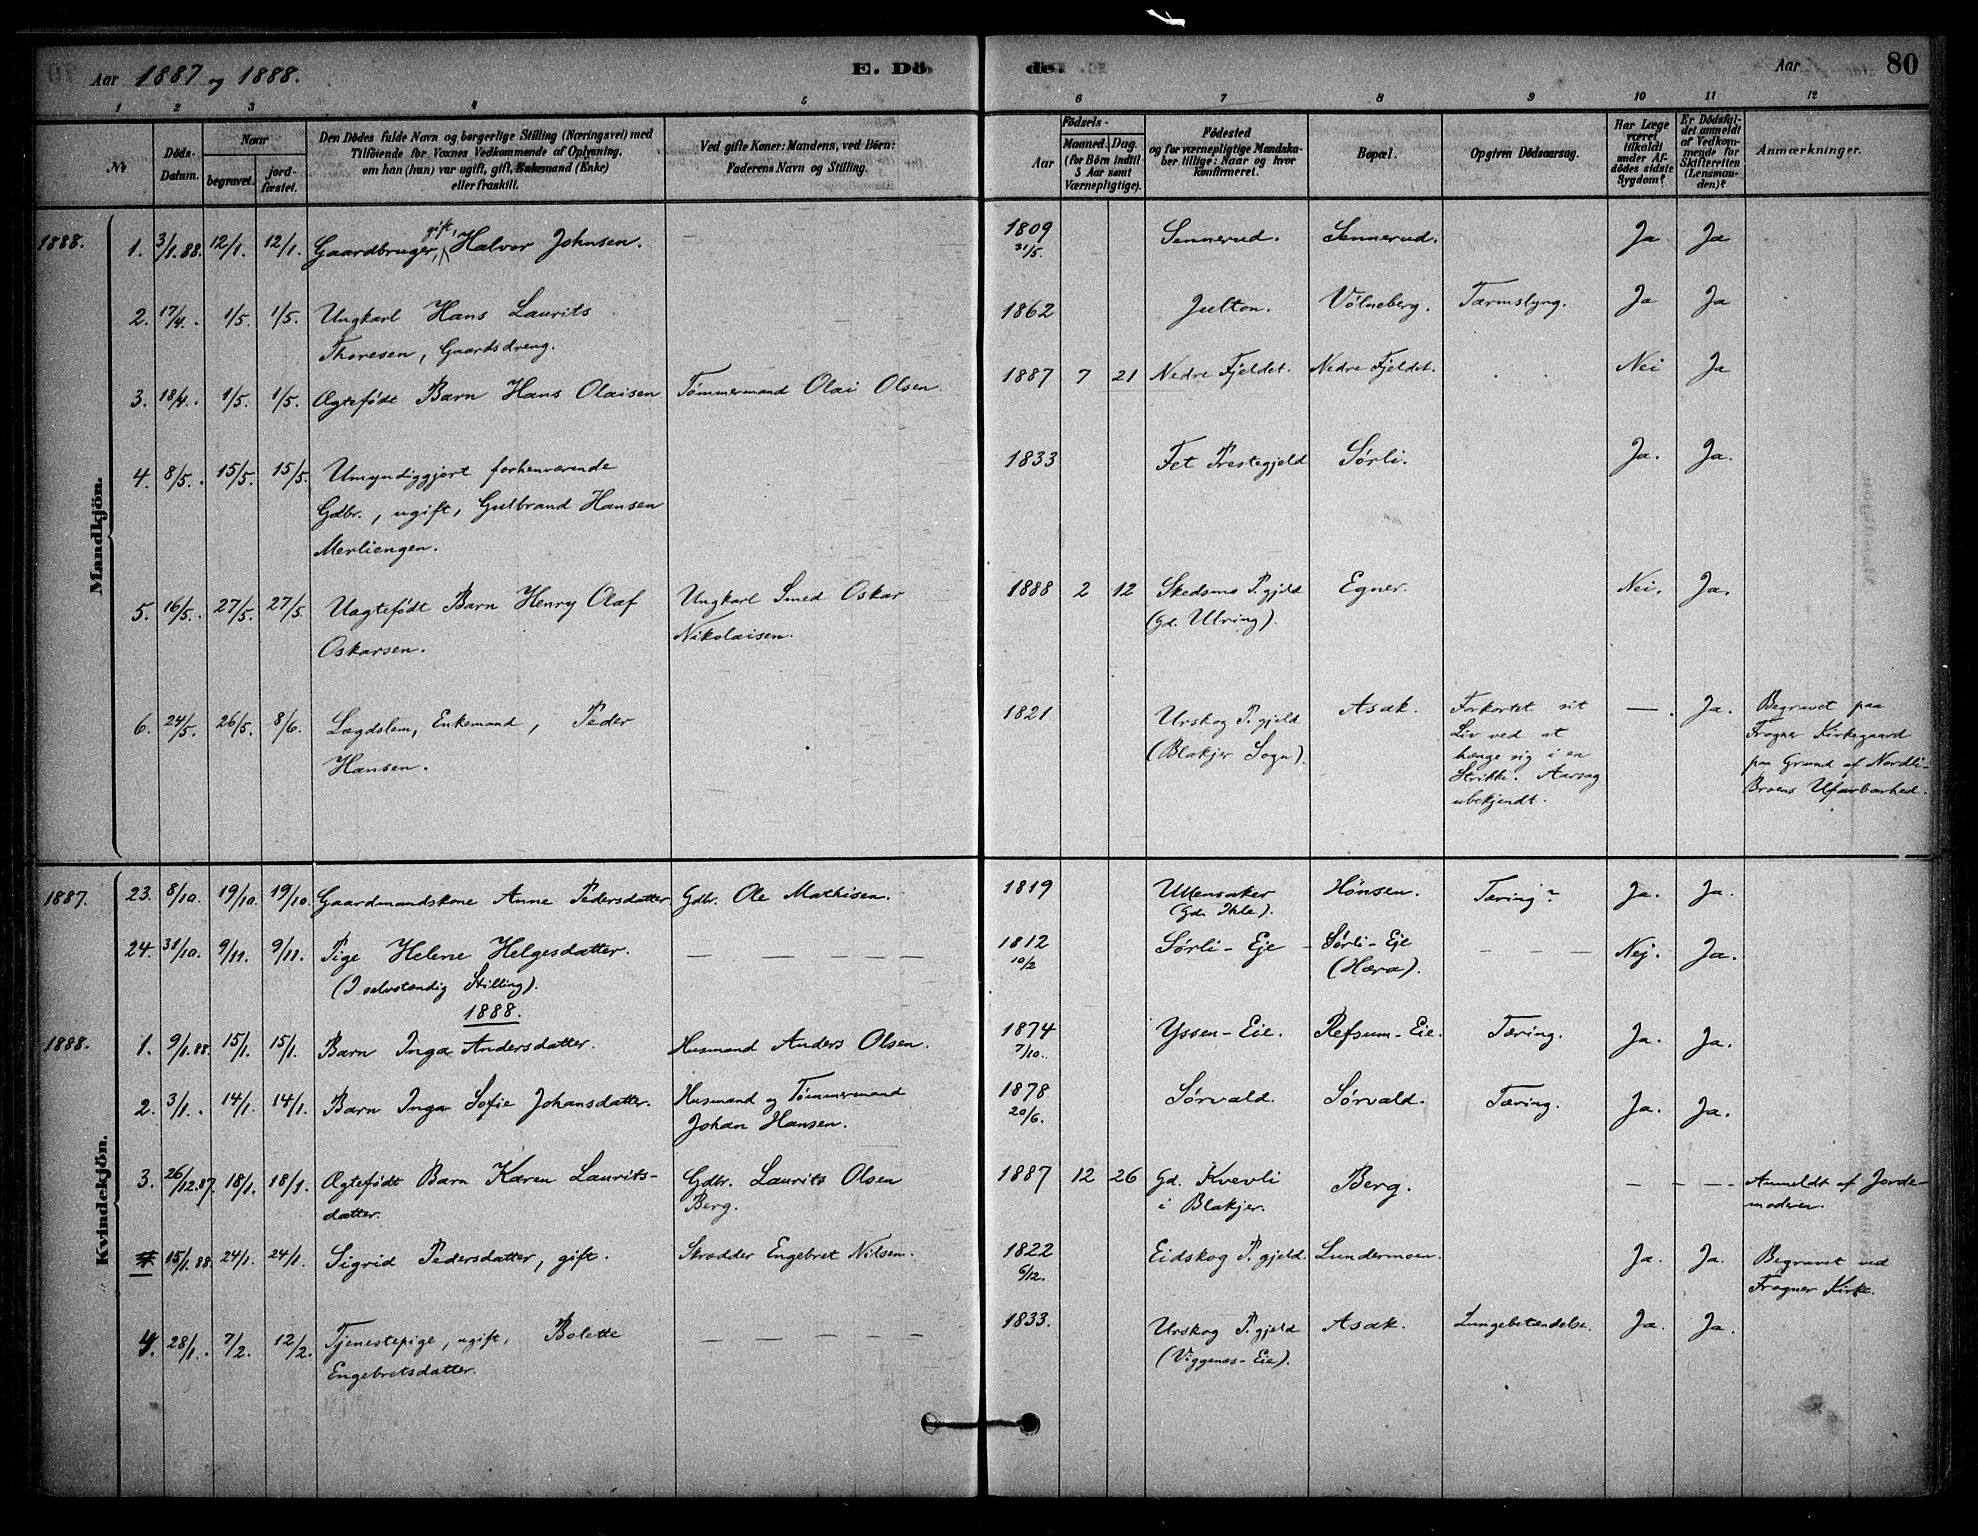 Aar 1887 og 1888.
E. Dö
de.
Aar
80
1 2 3 4 5 6 7 8 9 10 11 12
No
Döds-
Datum.
Naar
begravet.
jord-
fæstet.
Den Dödes fulde Navn og borgerlige Stilling (Næringsvei) med
Tilföiende for Voxnes Vedkommende af Oplysning,
om han (hun) var ugift, gift, Enkemand (Enke)
eller fraskilt.
Ved gifte Koner: Mandens, ved Börn:
Faderens Navn og Stilling.
Födsels-
Aar
Maaned.
Dag.
(for Börn indtil
5 Aar samt
Værnepligtige).
Födested
og for værnepligtige Mandska-
ber tillige: Naar og hvor
konfirmeret.
Bopæl.
Opgiven Dödsaarsag.
Har Læge
været
tilkaldt
under Af-
dödes sidste
Sygdom?
Er Dödsfal-
det anmeldt
af Vedkom-
mende for
Skifteretten
(Lensman-
den)?
Anmærkninger.
Mandkjön.
1888. 1. 3/1.88. 12/1. 12/1. Gaardbruger, gift, Halvor Johnsen. — 1809 31/5. Sennerud. Sennerud. Ja Ja
2. 17/4. 1/5. 1/5. Ungkarl Hans Laurits — — — 1862 Julton. Vølneberg. Tarmslyng. Ja Ja
Thoresen, Gaardsdreng.
3. 18/4. 1/5. 1/5. Ægtefødt Barn Hans Olaisen Tømmermand Olai Olsen. 1887 7 21 Nedre Fjeldet. Nedre Fjeldet. . . Nei Ja
4. 8/5. 15/5. 15/5. Umyndiggjort forhenværende 1833 Fet Prestegjeld Sørli. Ja. Ja.
Gdbr., ugift, Gulbrand Hansen
Merliengen.
5. 16/5. 27/5. 27/5. Uægtefødt Barn Henry Olaf Ungkarl Smed Oskar 1888 2 12 Skedsmo P.gjeld Egner. Nei. Ja.
Oskarsen. Nikolaisen. (Gd. Ulring).
6. 24/5. 26/5. 8/6. Lægdslem, Enkemand, Peder 1821 Urskog P.gjeld Asak. Forkortet sit — . Ja. Begravet paa
Hansen. (Blakjer Sogn). Liv ved at Frogner Kirkegaard
hænge sig i en paa Grund af Nordli-
Strikke. Aarsag Broens Ufarbarhed.
ubekjendt.
Kvindekjön.
1887. 23. 8/10. 19/10. 19/10. Gaardmandskone Anne Pedersdatter Gdbr. Ole Mathisen. 1819 Ullensaker Hønsen. Tæring? Ja. Ja.
(Gd. Ihle).
24. 31/10. 9/11. 9/11. Pige Helene Helgesdatter. — — — — — 1812 10/2 Sørli-Eje Sørli-Eje — — — Nej. Ja.
(I selvstændig Stilling). (Hæra).
1888.
1888. 1. 9/1.88. 15/1. 15/1. Barn Inga Andersdatter. Husmand Anders Olsen. 1874 7/10. Yssen-Eie. Refsum-Eie. Tæring. Ja. Ja.
2. 3/1. 14/1. 14/1. Barn Inga Sofie Johansdatter. Husmand og Tømmermand 1878 20/6. Sørvald. Sørvald. Tæring. Ja. Ja.
Johan Hansen.
3. 26/12.87. 18/1. 18/1. Ægtefødt Barn Karen Laurits- Gdbr. Laurits Olsen 1887 12 26 Gd. Kvevli Berg. — — — Anmeldt af Jorde-
datter. Berg. i Blakjer. moderen.
15/1.88. 24/1. 24/1. Sigrid Pedersdatter, gift. Skrædder Engebret Nilsen. 1822 6/12. Eidskog P.gjeld. Lundermoen. Ja. Ja. Begravet ved
Frogner Kirke.
4. 28/1. 7/2. 12/2. Tjenestepige, ugift, Bolette — — — — — 1833. Urskog P.gjeld Asak. Lungebetændelse. Ja. Ja.
Engebretsdatter. (Viggenæs-Eie).